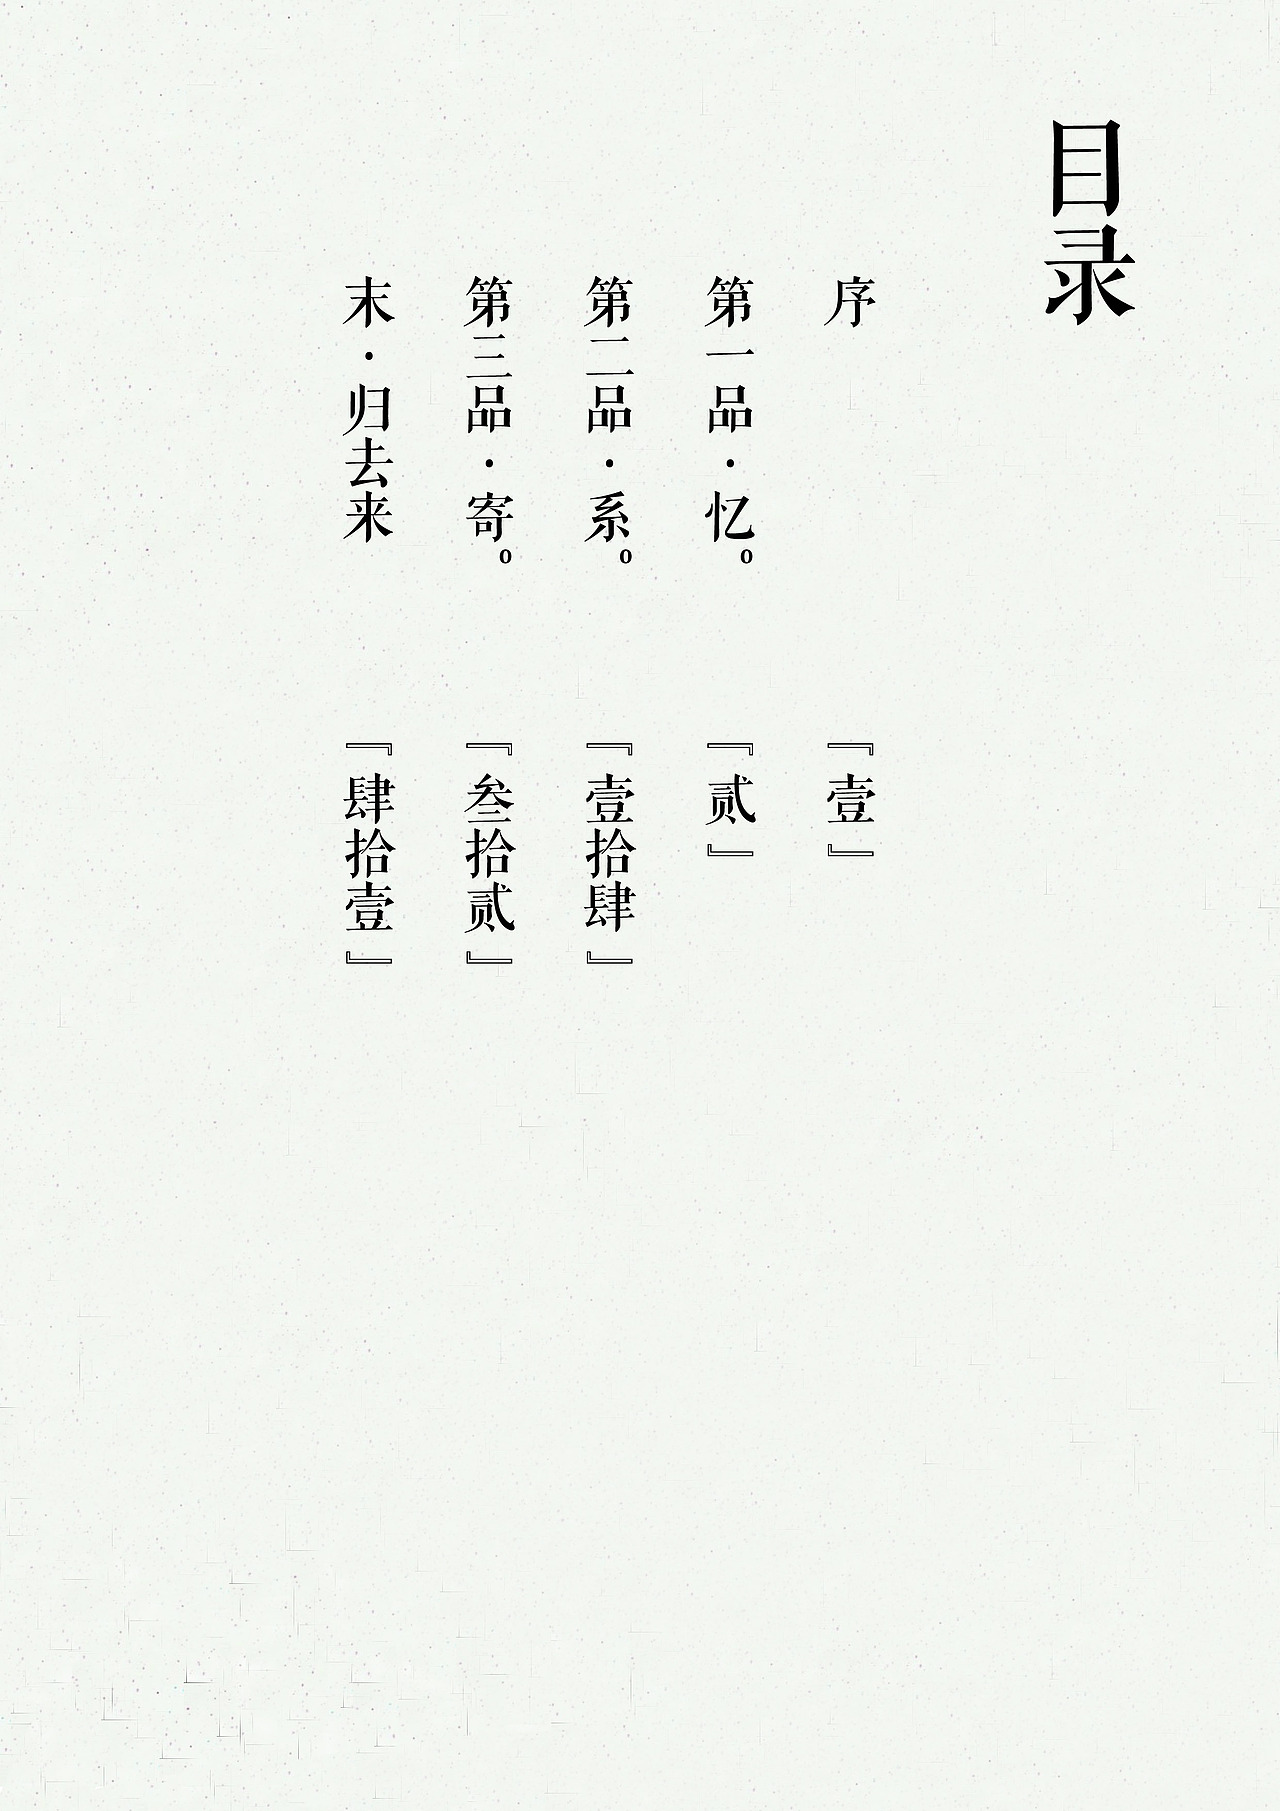 目录
序 『壹』
第一品·忆。 『贰』
第二品·系。 『壹拾肆』
第三品·寄。 『叁拾贰』
末·归去来 『肆拾壹』